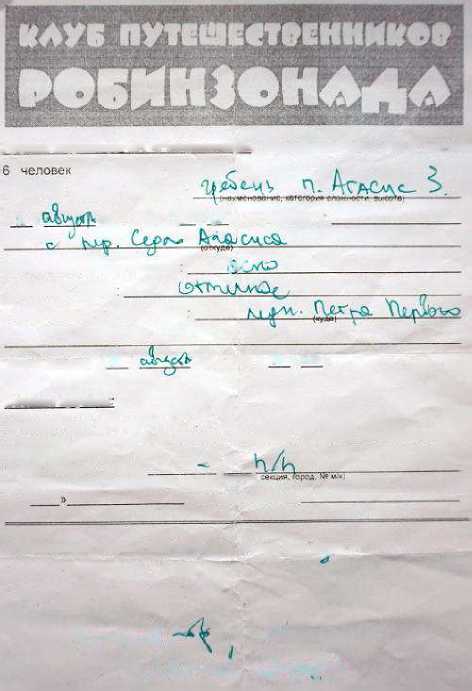 КЛУБ ПУТЕШЕСТВЕННИКОВ
РОБИНЗОНАДА
6 человек
гребень п. Агасис З.
(наименование, категория сложности, высота)
август
с пер. Седло Агасиса
(откуда)
ясно
отличное
ледн. Петра Первого
(куда)
август
- п/п
секция, город, № м/к)
»